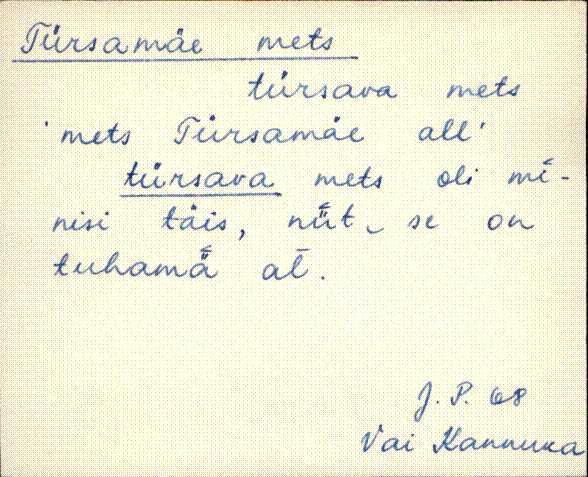 Türsamäe mets
türsava mets
'mets Türsamäe all'
türsava mets oli mi-
nisi täis, nüt se on
tuhamä̀ al̄.
J. P. 68
Vai Kannuka